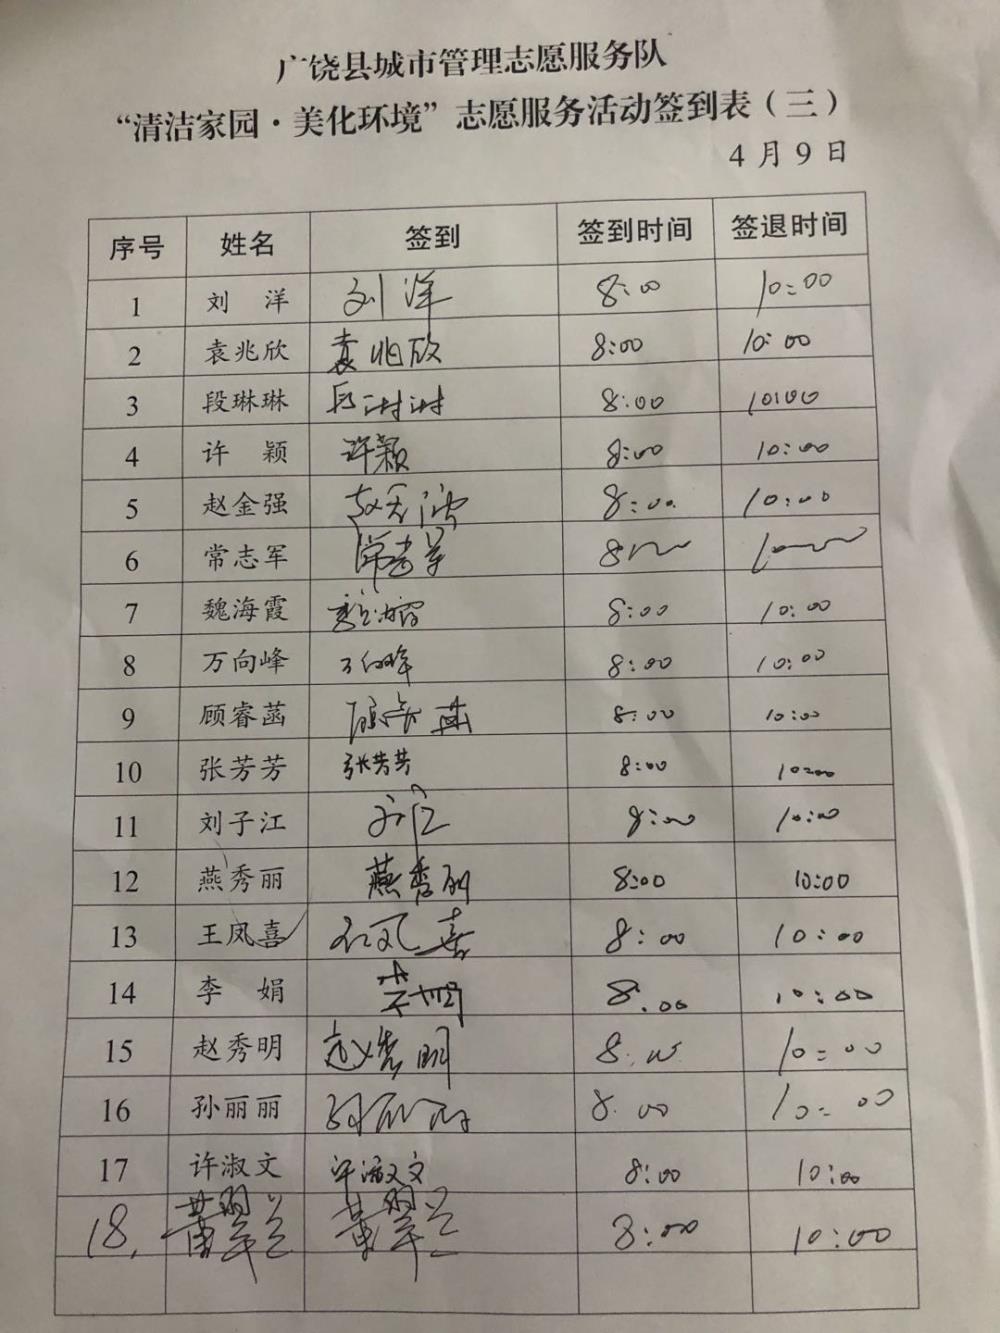 广饶县城市管理志愿服务队
“清洁家园·美化环境”志愿服务活动签到表（三）
4月9日
序号 姓名 签到 签到时间 签退时间
1 刘 洋 刘洋 8:00 10:00
2 袁兆欣 袁兆欣 8:00 10:00
3 段琳琳 段琳琳 8:00 10:00
4 许 颖 许颖 8:00 10:00
5 赵金强 8:00 10:00
6 常志军 常志军
7 魏海霞 魏海霞 8:00 10:00
8 万向峰 万向峰 8:00 10:00
9 顾睿菡 顾睿菡 8:00 10:00
10 张芳芳 张芳芳 8:00 10:00
11 刘子江 8:00 10:00
12 燕秀丽 燕秀丽 8:00 10:00
13 王凤喜 王凤喜 8:00 10:00
14 李 娟 李娟 8:00 10:00
15 赵秀明 赵秀明 8:00 10:00
16 孙丽丽 孙丽丽 8:00 10:00
17 许淑文 许淑文 8:00 10:00
18. 黄翠兰 黄翠兰 8:00 10:00